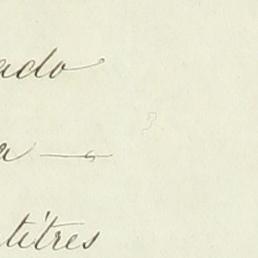 ado
a —
titres